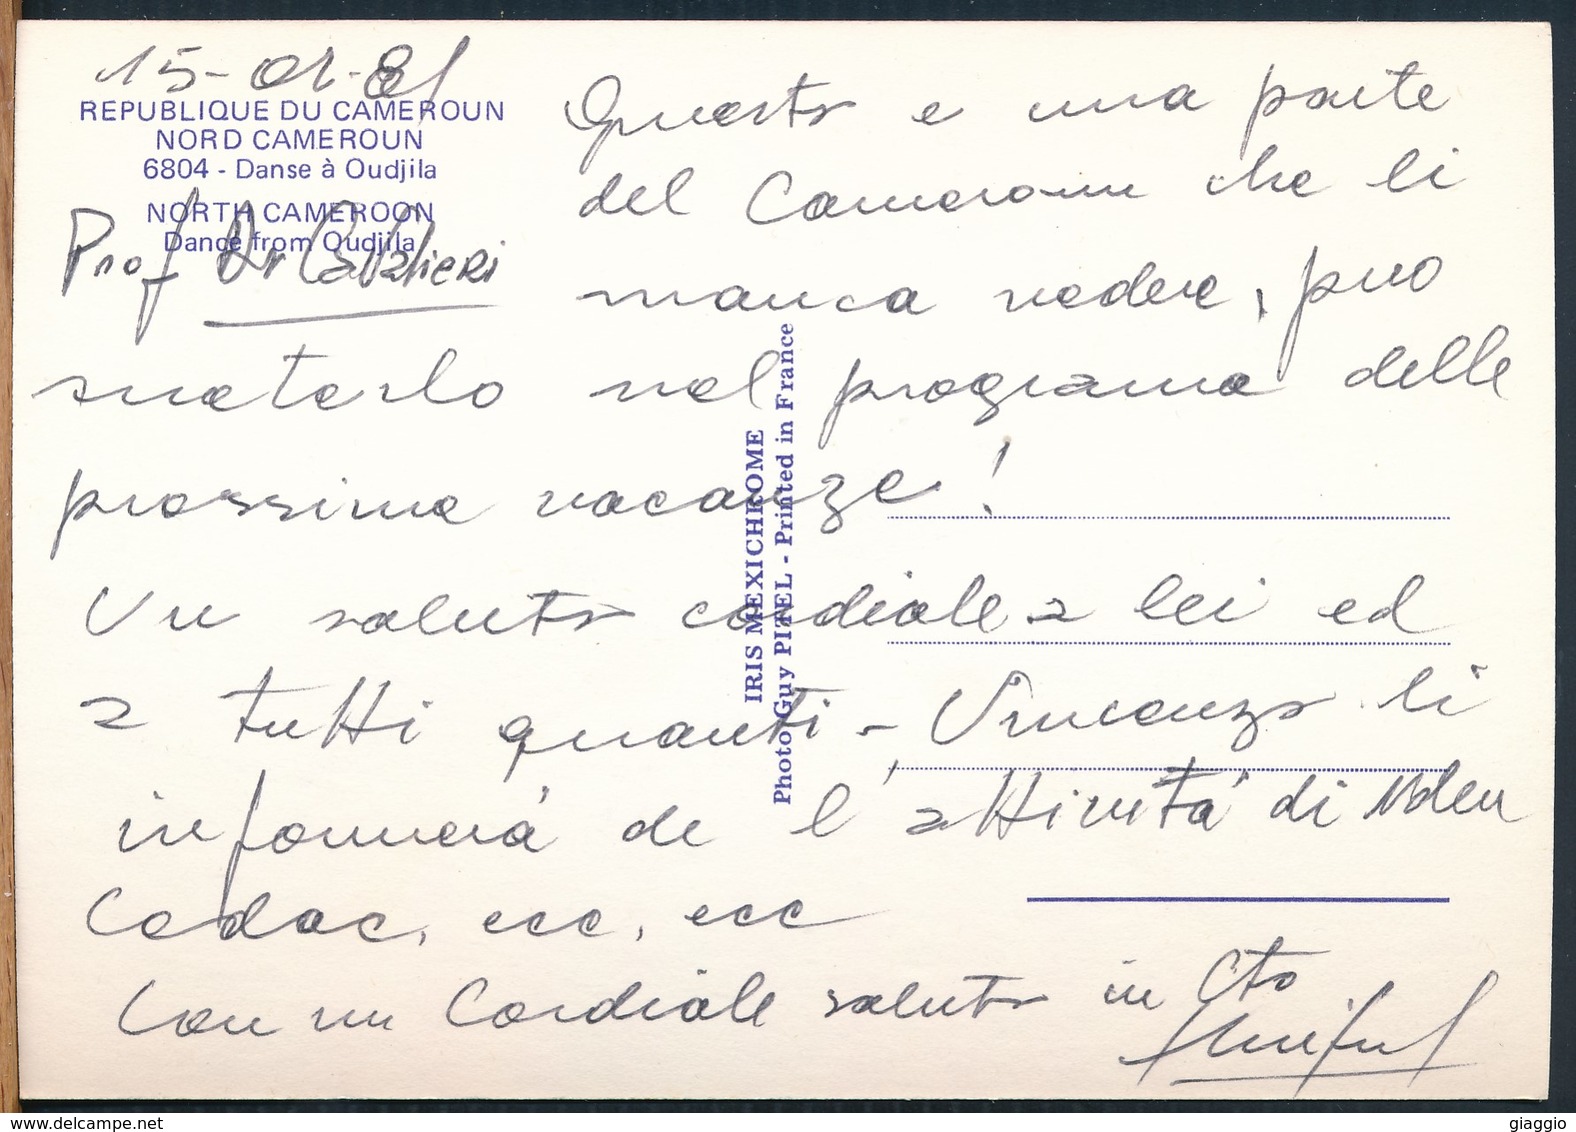 15-01-81
REPUBLIQUE DU CAMEROUN
NORD CAMEROUN
6804 - Danse à Oudjila
NORTH CAMEROON
Dance from Oudjila
Prof Dr Cavalieri
Questo e una parte
del Cameroun che li
manca vedere, puo
meterlo nel programa delle
prossime vacanze!
Un saluto cordiale a lei ed
a tutti quanti - Vincenzo li
informerà de l'attività di Nden
Cedac, ecc, ecc
Con un Cordiale saluto in Cto
IRIS MEXICHROME
Photo Guy PITEL - Printed in France
giaggio
delcampe.net